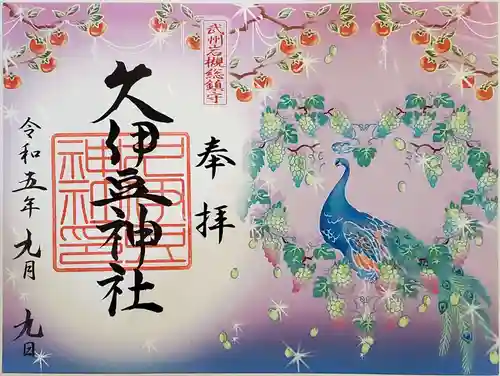 武州岩槻総鎮守
奉拝
久伊豆神社
令和五年九月九日